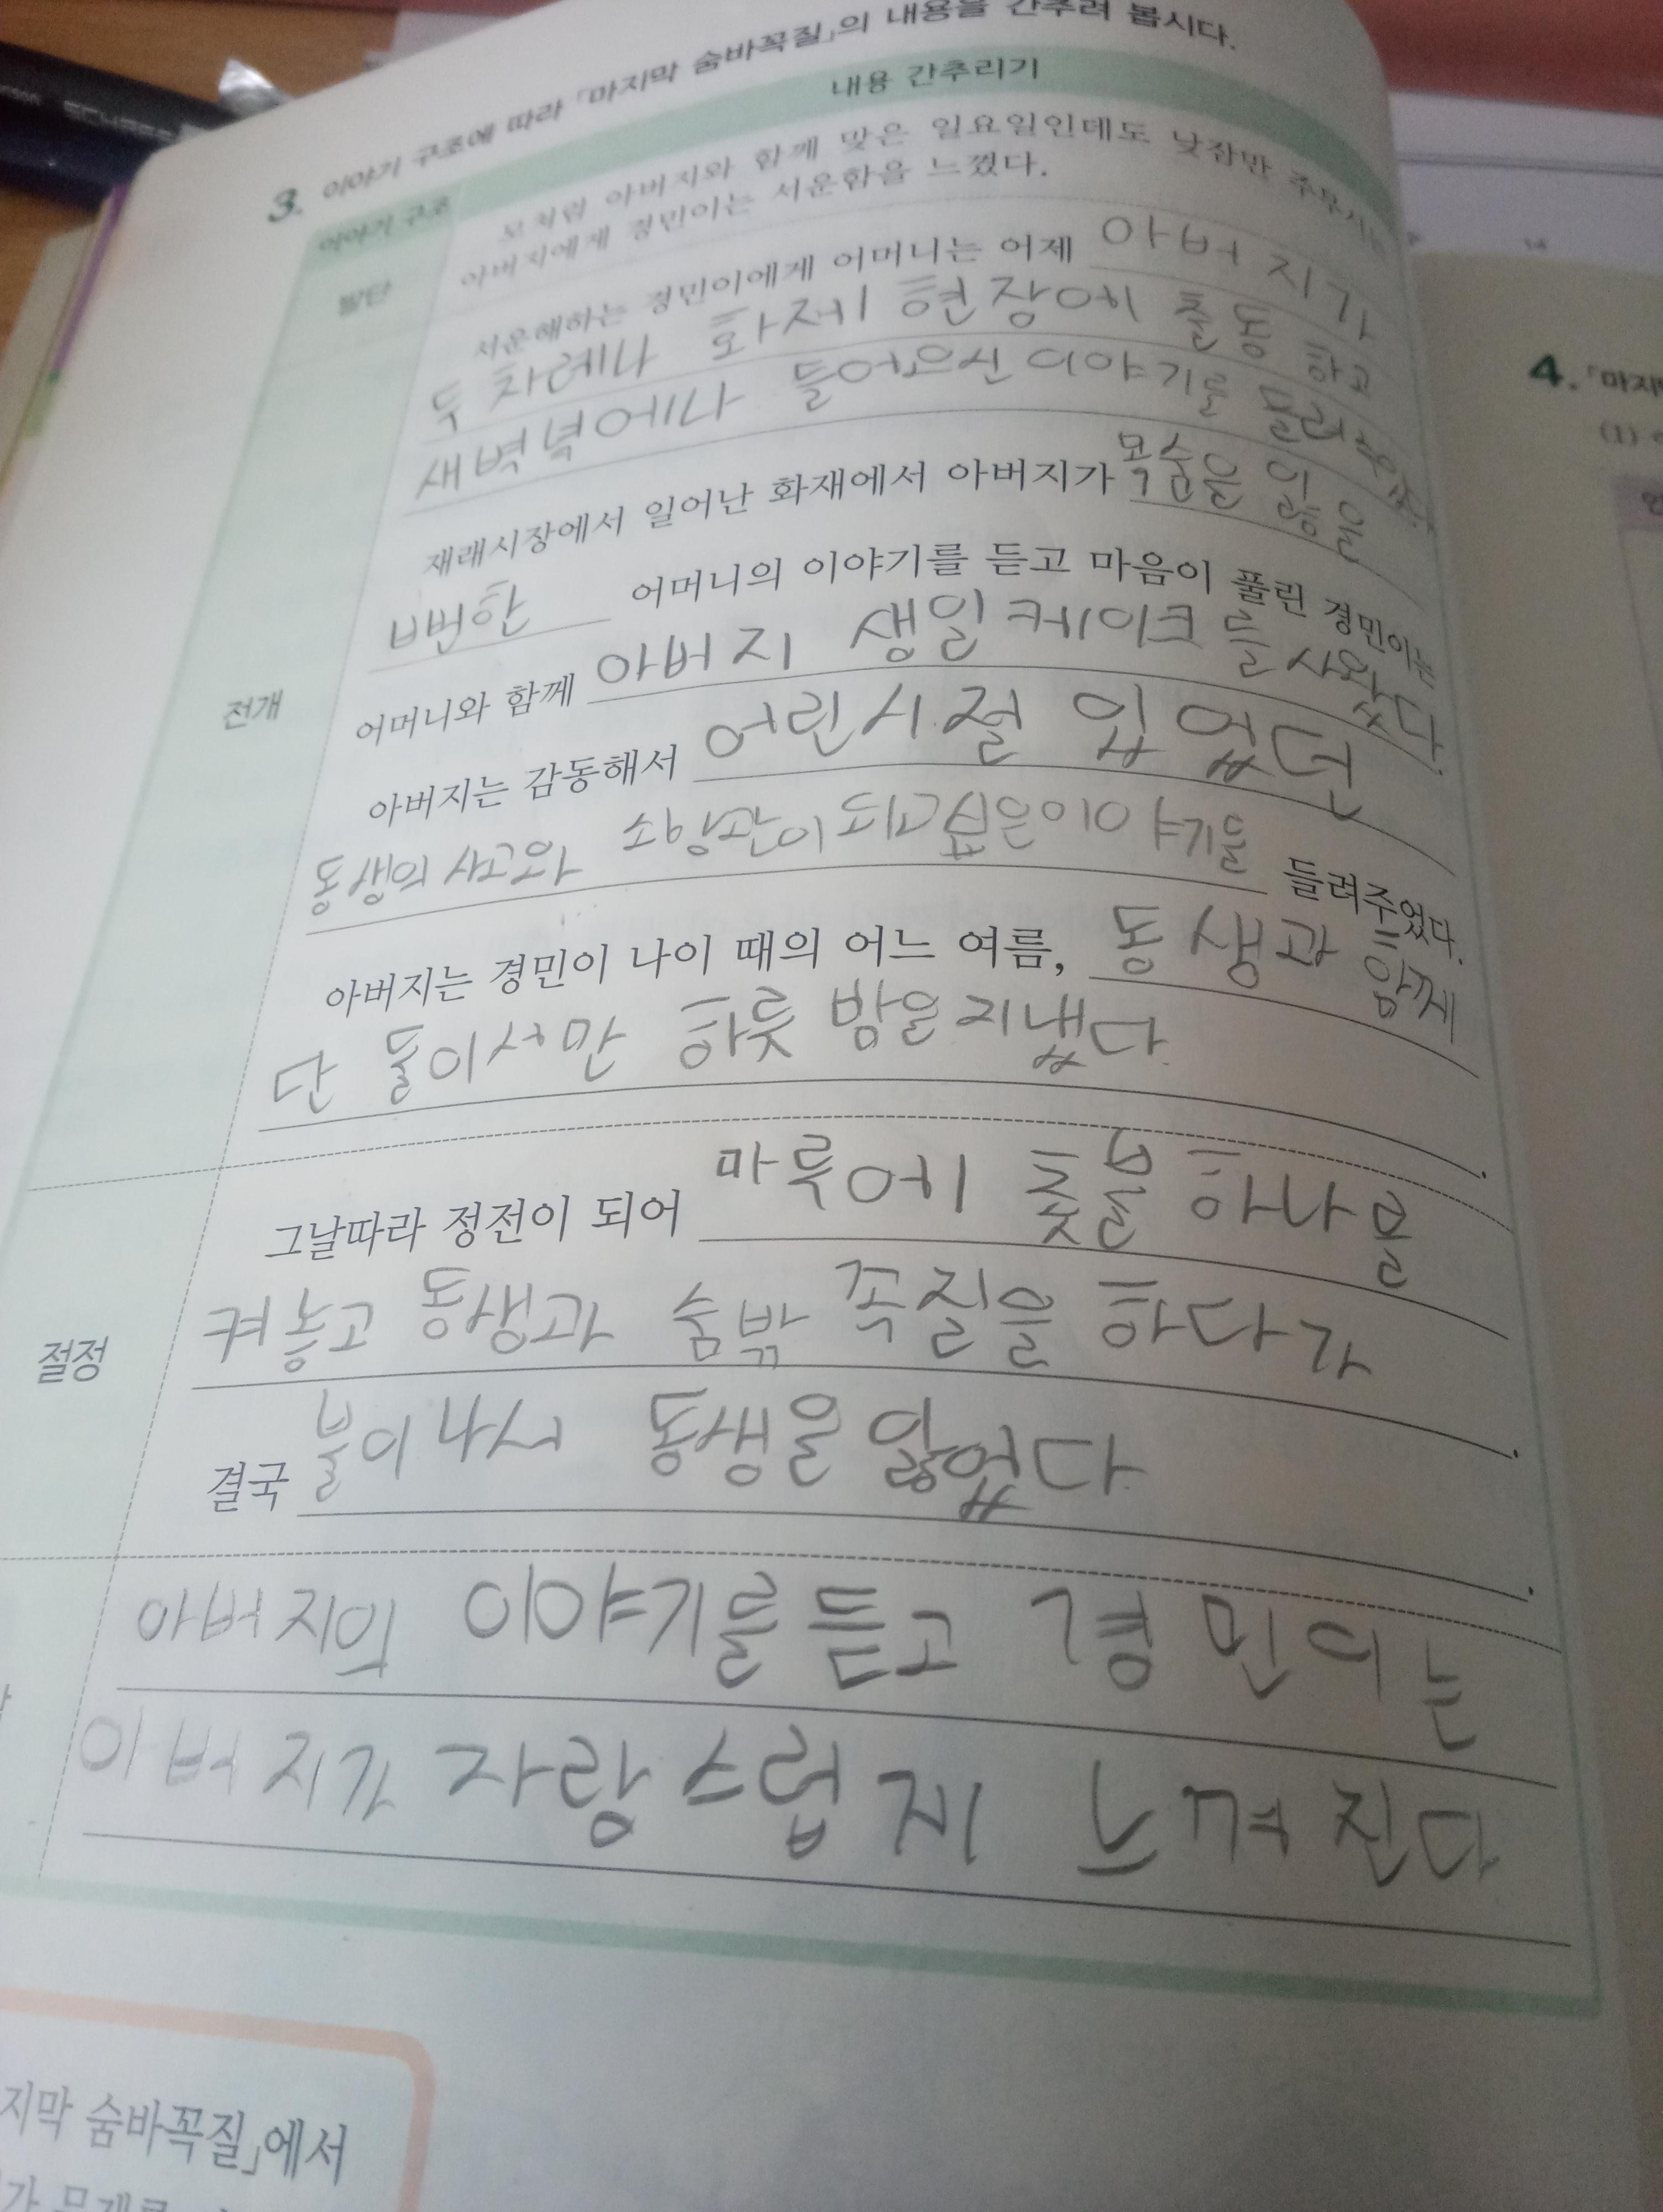 3. 이야기 구조에 따라 「마지막 숨바꼭질」의 내용을 간추려 봅시다.
이야기 구조
내용 간추리기
발단
모처럼 아버지와 함께 맞은 일요일인데도 낮잠만 주무시는
아버지에게 경민이는 서운함을 느꼈다.
전개
서운해하는 경민이에게 어머니는 어제 아버지가
두 차례나 화제 현장에 출동 하고
새벽녘에나 들어오신 이야기를 들려주었다.
재래시장에서 일어난 화재에서 아버지가 목숨을 잃을
뻔한 어머니의 이야기를 듣고 마음이 풀린 경민이는
어머니와 함께 아버지 생일케이크를 사왔다.
아버지는 감동해서 어린시절 있었던
동생의 사고와 소방관이 되고싶은이야기를 들려주었다.
아버지는 경민이 나이 때의 어느 여름, 동생과 함께
단 둘이서만 하룻 밤을지냈다.
절정
그날따라 정전이 되어 마루에 촛불 하나를
켜놓고 동생과 숨밖 꼭질을 하다가
결국 불이나서 동생을 잃었다.
아버지의 이야기를듣고 경민이는
아버지가 자랑스럽게 느껴진다
4. 「마지막
(1)
지막 숨바꼭질」에서